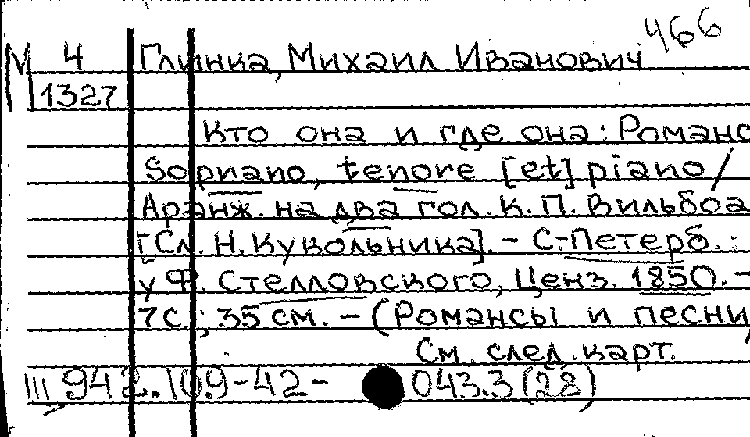 466
М 4 Глинка, Михаил Иванович
1327
Кто она и где она: Романс
Sopriano, tenore [et] piano/
Аранж. на два гол. К.П. Вильбоа
[Сл. Н. Кукольника]. - С.-Петерб.:
у Ф. Стелловского, Ценз. 1850. -
7с.; 35 см. - (Романсы и песни,
См. след. карт.
III 942.109-42- 043.3(28)